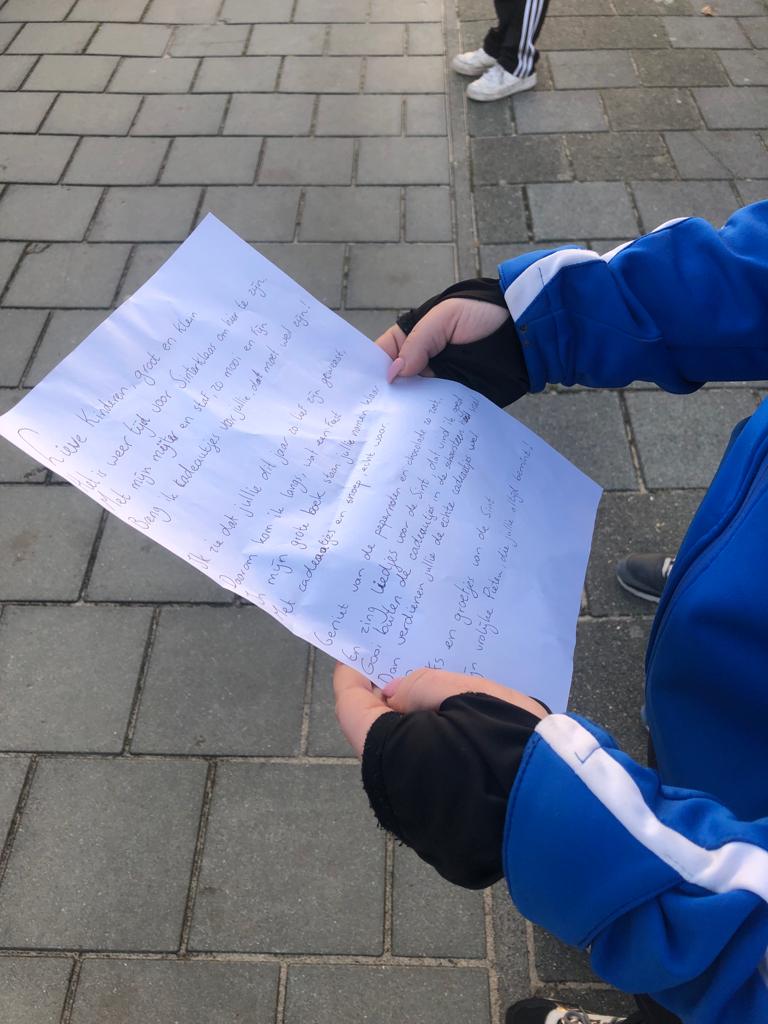 Lieve Kinderen, groot en klein
Het is weer tijd voor Sinterklaas om hier te zijn.
Met mijn mijter en staf, zo mooi en fijn
Breng ik cadeautjes voor jullie, dat moet wel zijn!
Ik zie dat jullie dit jaar zo lief zijn geweest,
Daarom kom ik langs, wat een feest
In mijn grote boek staan jullie namen klaar
Met cadeautjes en snoep echt waar.
Geniet van de pepernoten en chocolade zo zoet.
En zing liedjes voor de Sint, dat vind ik goed
Gooi buiten de cadeautjes in de schoenen
Dan verdienen jullie de echte cadeautjes wel
en groetjes van de Sint
vrolijke Pieten, die jullie altijd